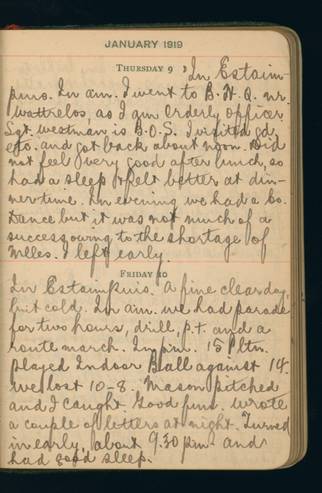 JANUARY 1919
THURSDAY 9 In Estaim-
puis. In am. I went to B.H.Q. nr.
Wattrelos, as I am Orderly officer.
Sgt. Westman is B.O.S. I visited gd.
etc. and got back about noon. Did
not feel very good after lunch, so
had a sleep & felt better at din-
ner time. In evening we had a Co.
Dance but it was not much of a
success owing to the shortage of
Melles. I left early.
FRIDAY 10
In Estampuis. A fine clear day,
but cold. In am. we had parade
for two hours, drill, p.t. and a
route march. In pm. 15 Pltn.
played Indoor Ball against 14.
We lost 10-8. Mason pitched
and I caught. Good fun. Wrote
a couple of letters at night. Turned
in early, about 9.30 pm and
had good sleep.